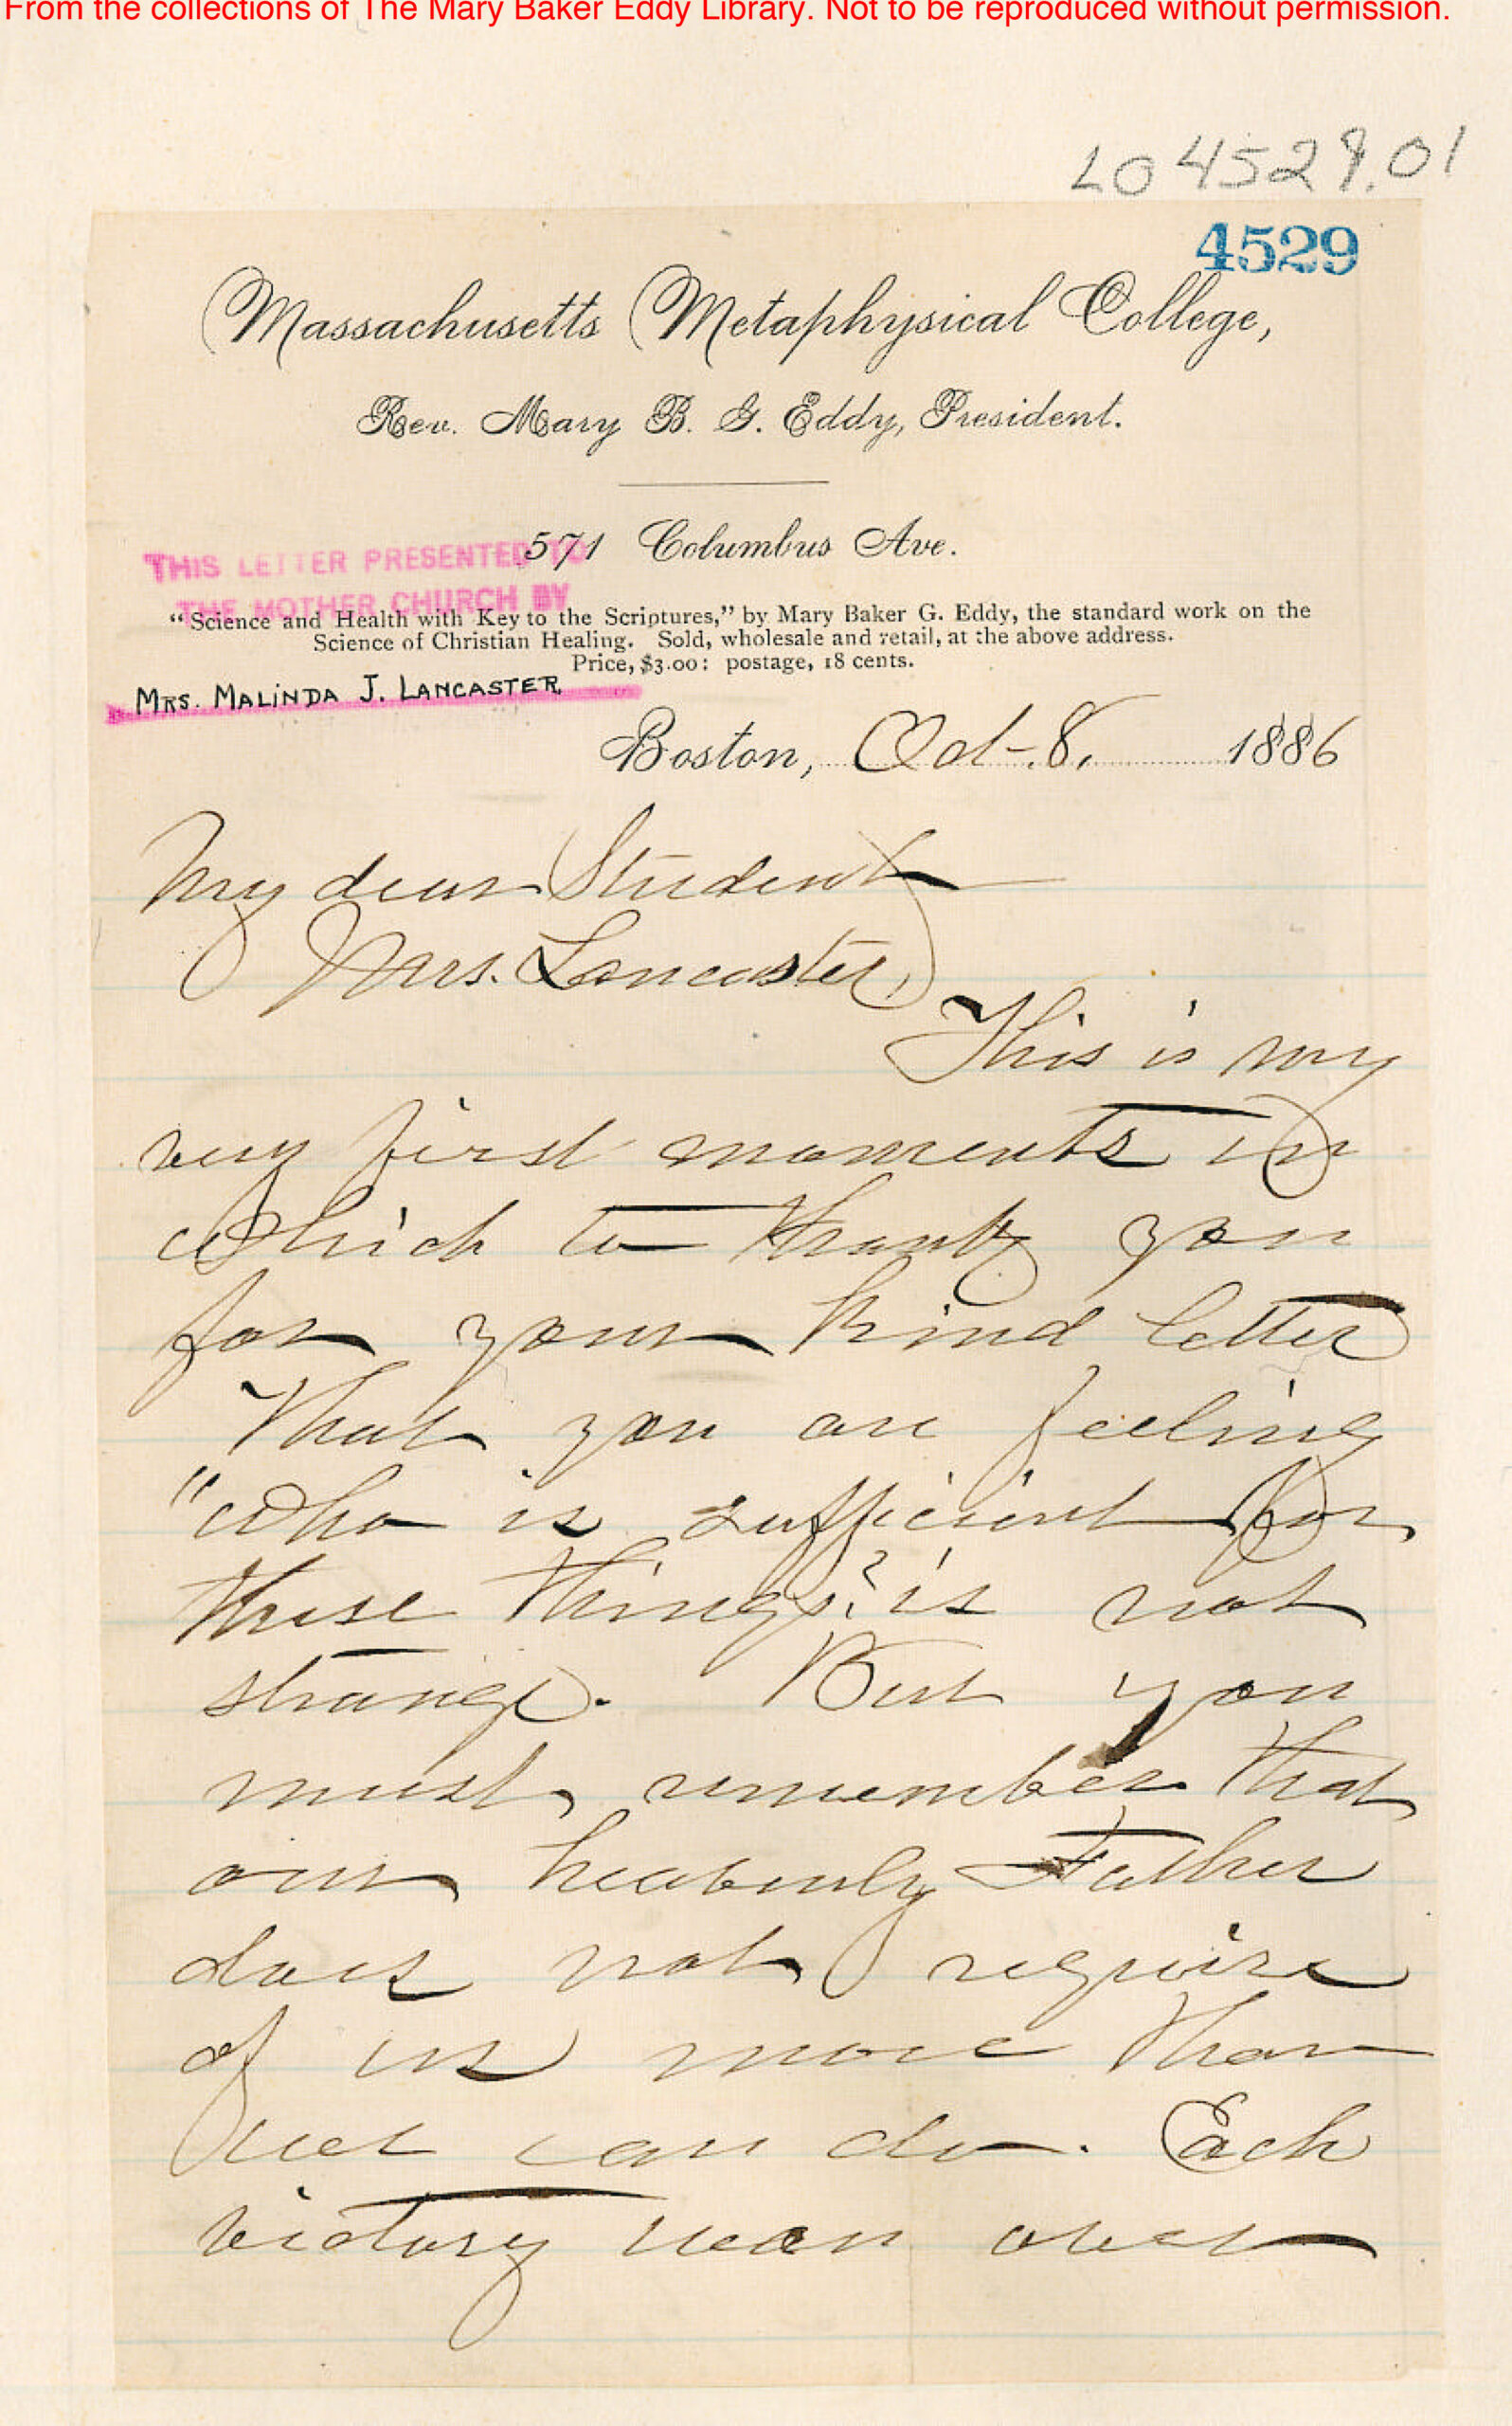 From the collections of The Mary Baker Eddy Library. Not to be reproduced without permission.
L04529.01
4529
Massachusetts Metaphysical College,
Rev. Mary B. G. Eddy, President.
571 Columbus Ave.
THIS LETTER PRESENTED TO
THE MOTHER CHURCH BY
"Science and Health with Key to the Scriptures," by Mary Baker G. Eddy, the standard work on the
Science of Christian Healing. Sold, wholesale and retail, at the above address.
Price, $3.00: postage, 18 cents.
MRS. MALINDA J. LANCASTER
Boston, Oct-8, 1886
My dear Student
Mrs. Lancaster,
This is my
very first moments in
which to thank you
for your kind letter
That you are feeling
"who is sufficient for
these things?" is not
strange. But you
must remember that
our heavenly Father
does not require
of us more than
we can do. Each
victory won over